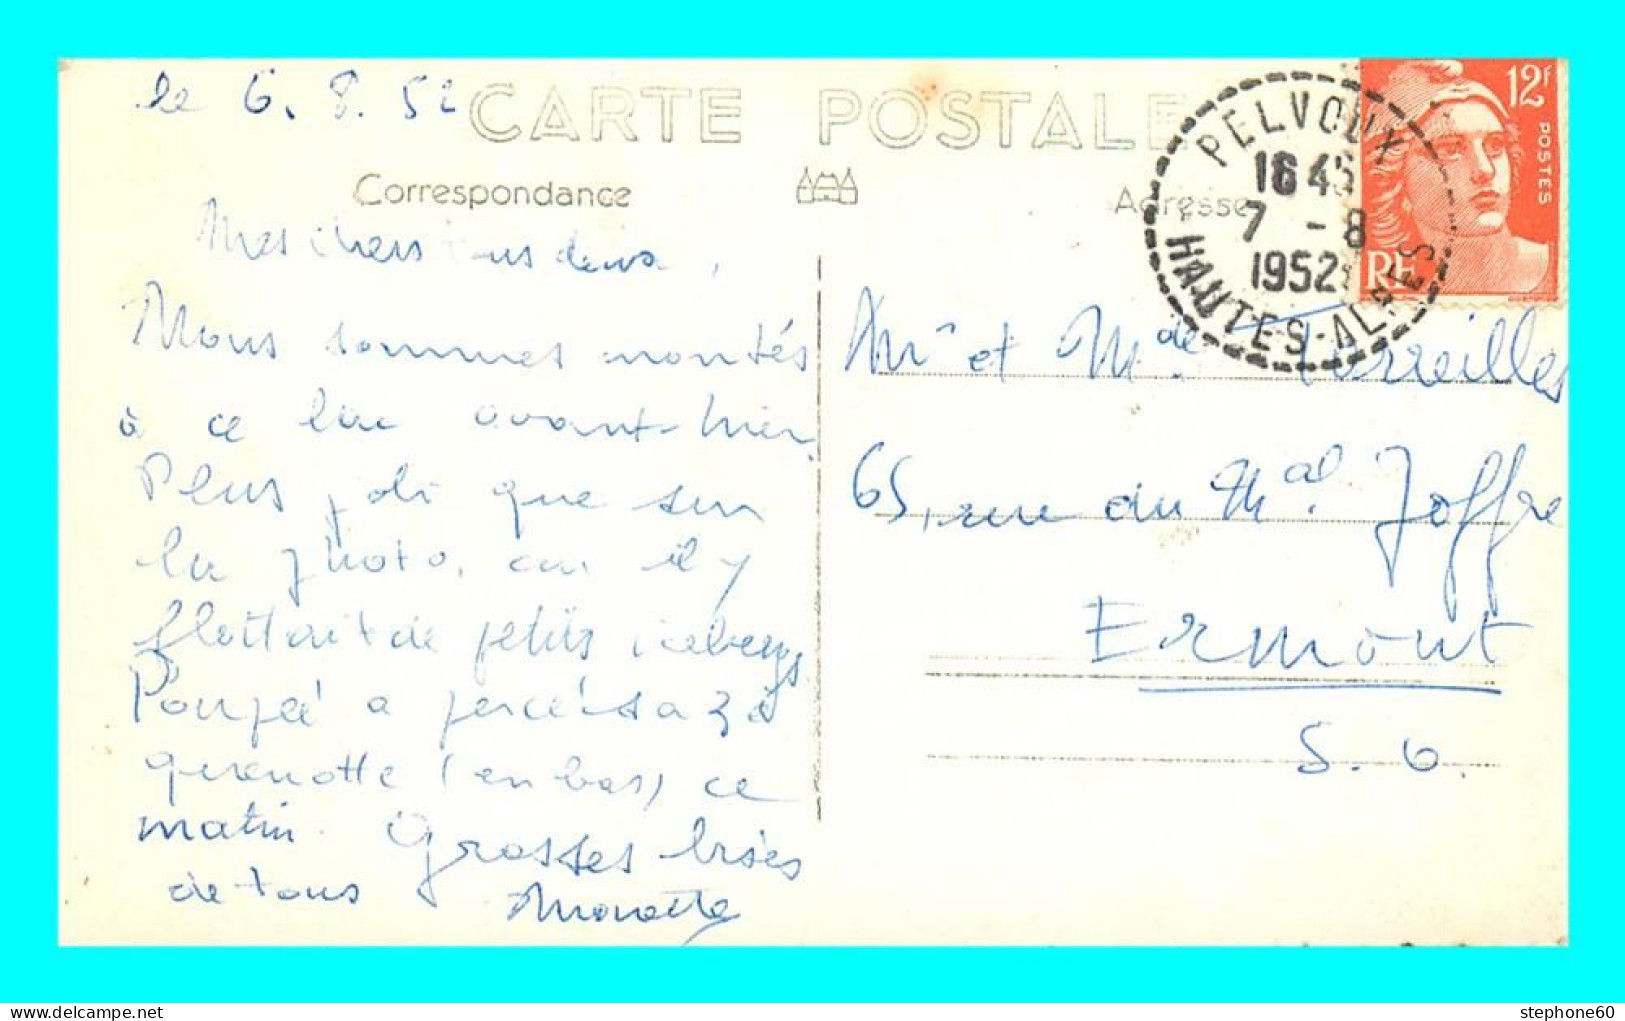 le 6. 8. 52
CARTE POSTALE
Correspondance
Adresse
PELVOUX
16 45
7 - 8
1952
HAUTES-ALPES
12F
POSTES
RF
Mes chers tous deux,
Nous sommes montés
à ce lac avant-hier.
Plus joli que sur
la photo, car il y
flottait de petits icebergs
Poupée a percé sa 3è
quenotte (en bas) ce
matin. Grosses bises
de tous
Mr et Mde Torreilles
65, rue du Mal. Joffre
Ermont
S. O.
stephone60